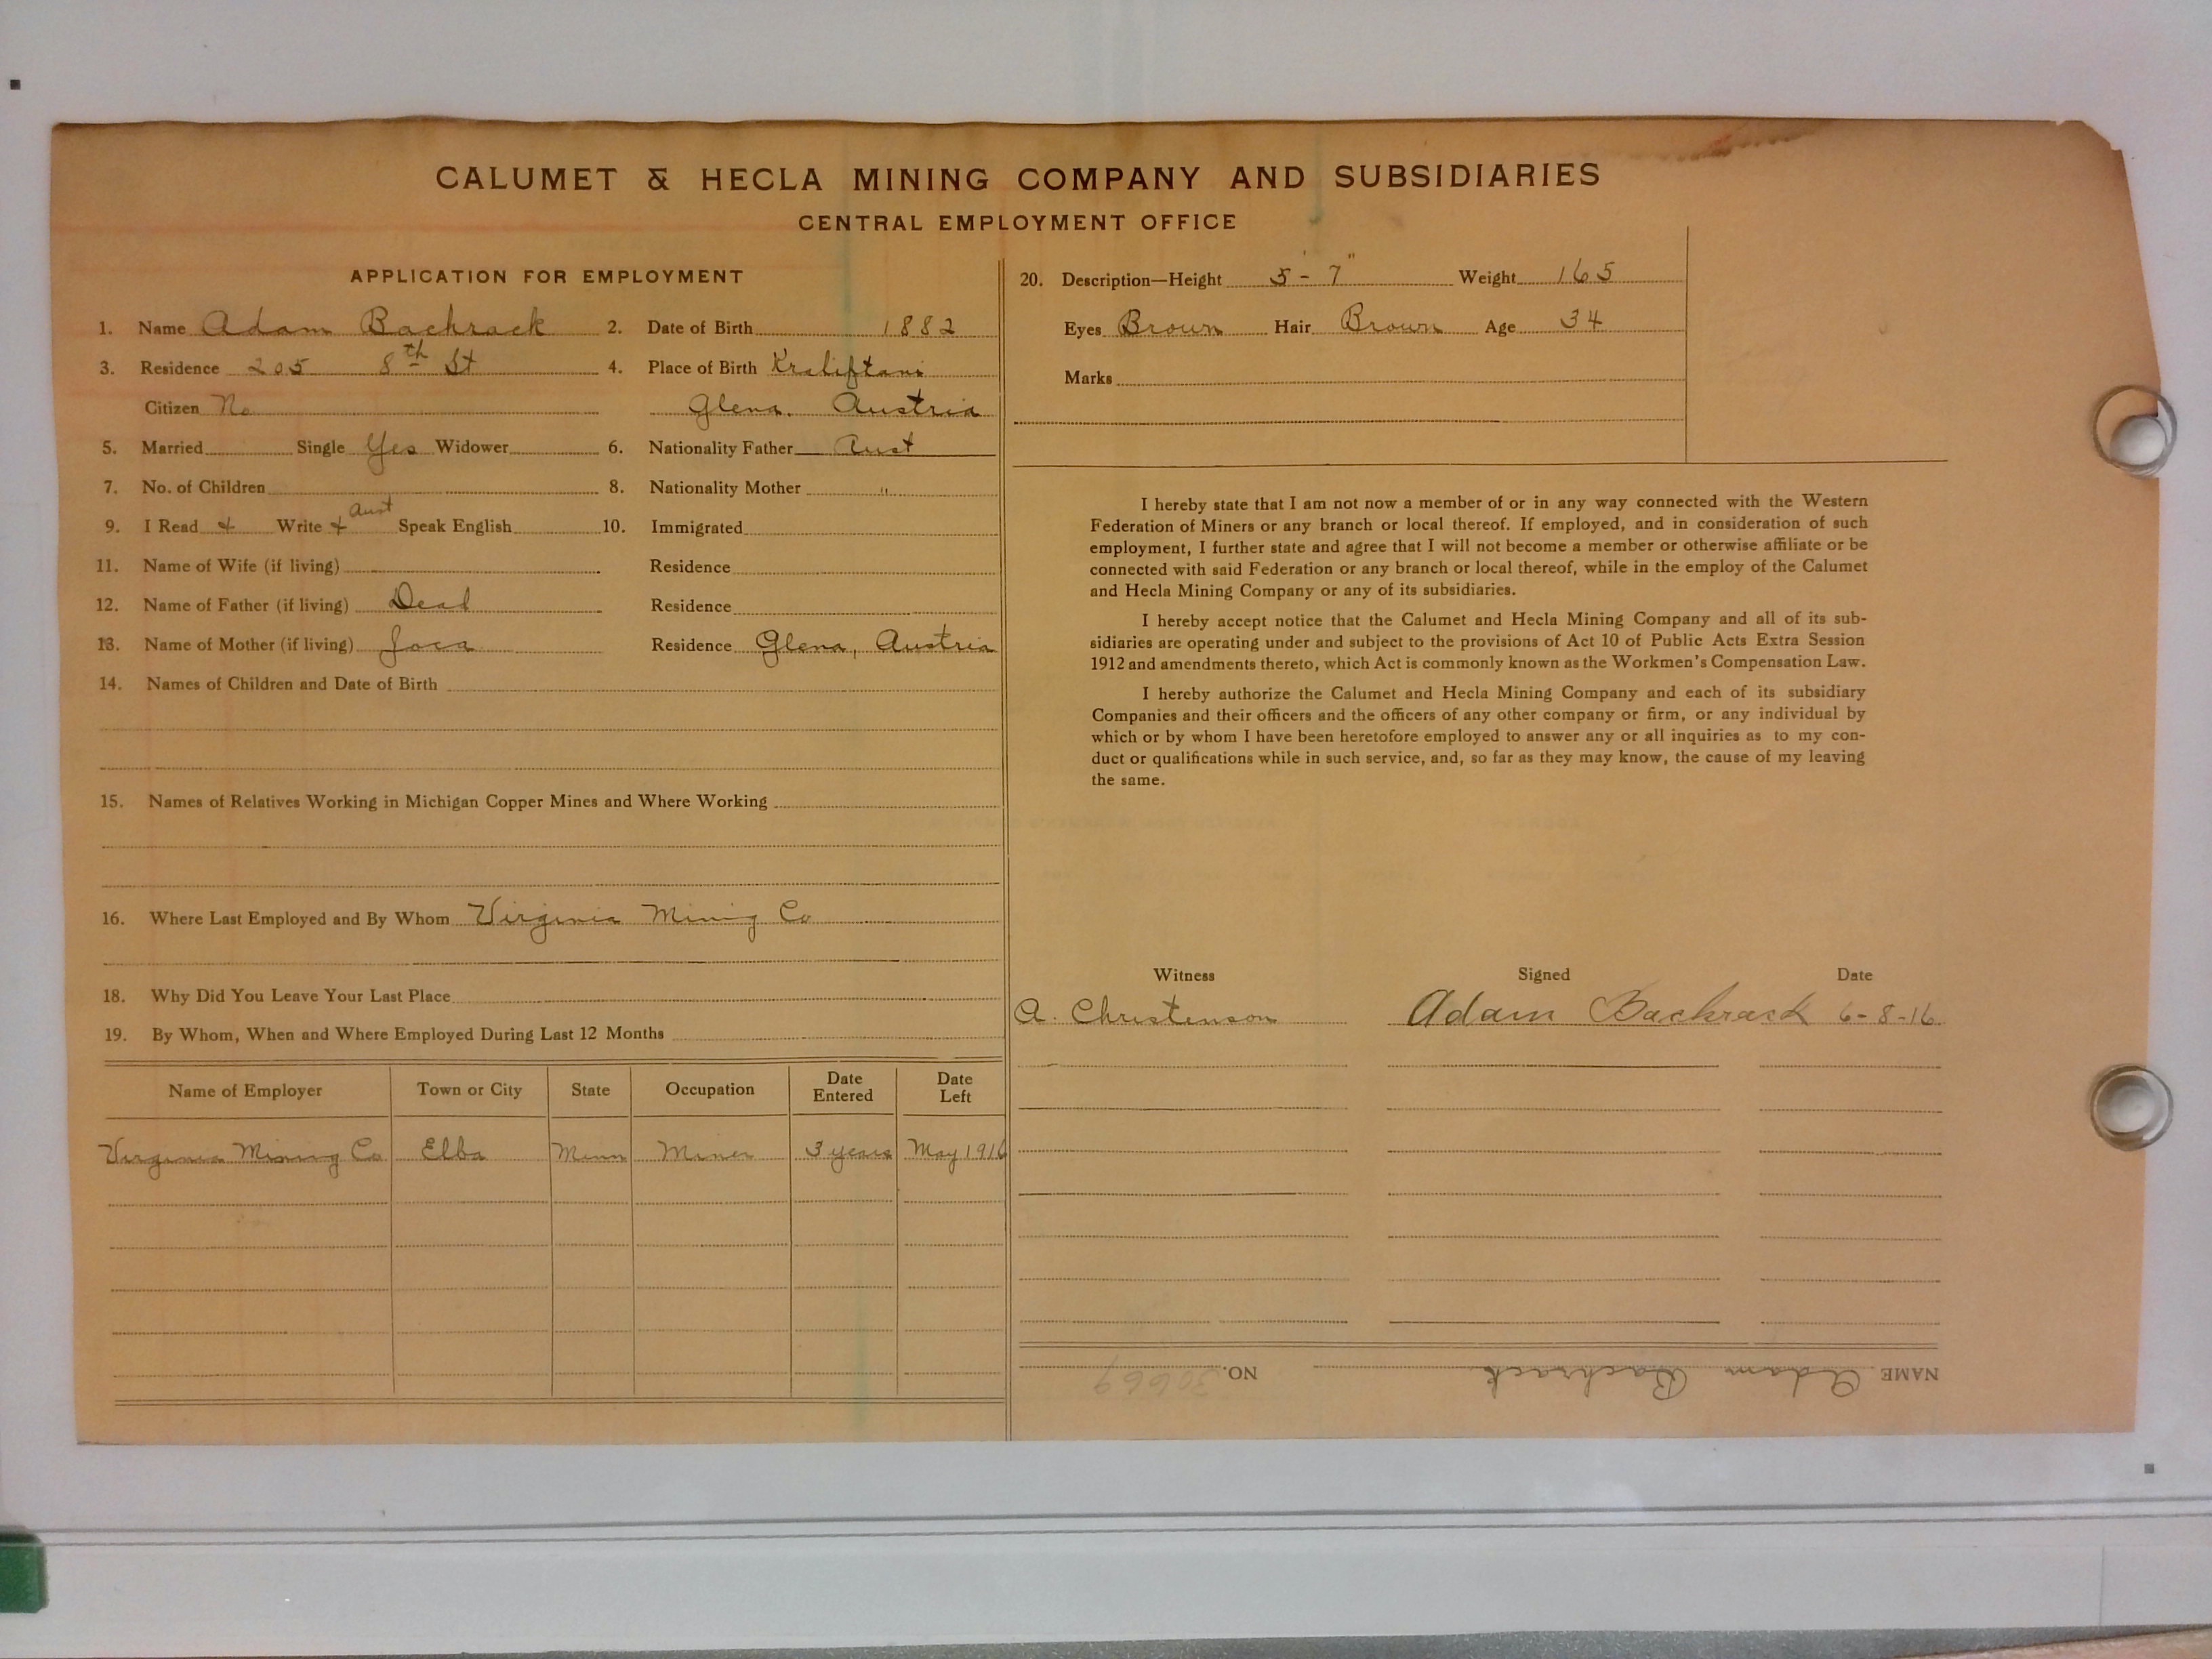 CALUMET & HECLA MINING COMPANY AND SUBSIDIARIES
CENTRAL EMPLOYMENT OFFICE
APPLICATION FOR EMPLOYMENT
1. Name Adam Bachrack 2. Date of Birth 1882
3. Residence 205 8th St 4. Place of Birth Kraliftani
Citizen No Glena. Austria
5. Married Single Yes Widower 6. Nationality Father Aust
7. No. of Children 8. Nationality Mother "
9. I Read + Write + Aust Speak English 10. Immigrated
11. Name of Wife (if living) Residence
12. Name of Father (if living) Dead Residence
13. Name of Mother (if living) Joca Residence Glena, Austria
14. Names of Children and Date of Birth
15. Names of Relatives Working in Michigan Copper Mines and Where Working
16. Where Last Employed and By Whom Virginia Mining Co
18. Why Did You Leave Your Last Place
19. By Whom, When and Where Employed During Last 12 Months
Name of Employer Town or City State Occupation Date Entered Date Left
Virginia Mining Co Elba Minn Miner 3 years May 1916
20. Description—Height 5'-7" Weight 165
Eyes Brown Hair Brown Age 34
Marks
I hereby state that I am not now a member of or in any way connected with the Western
Federation of Miners or any branch or local thereof. If employed, and in consideration of such
employment, I further state and agree that I will not become a member or otherwise affiliate or be
connected with said Federation or any branch or local thereof, while in the employ of the Calumet
and Hecla Mining Company or any of its subsidiaries.
I hereby accept notice that the Calumet and Hecla Mining Company and all of its sub-
sidiaries are operating under and subject to the provisions of Act 10 of Public Acts Extra Session
1912 and amendments thereto, which Act is commonly known as the Workmen's Compensation Law.
I hereby authorize the Calumet and Hecla Mining Company and each of its subsidiary
Companies and their officers and the officers of any other company or firm, or any individual by
which or by whom I have been heretofore employed to answer any or all inquiries as to my con-
duct or qualifications while in such service, and, so far as they may know, the cause of my leaving
the same.
Witness Signed Date
A. Christenson Adam Bachrack 6-8-16
NAME Adam Bachrack NO. 30669